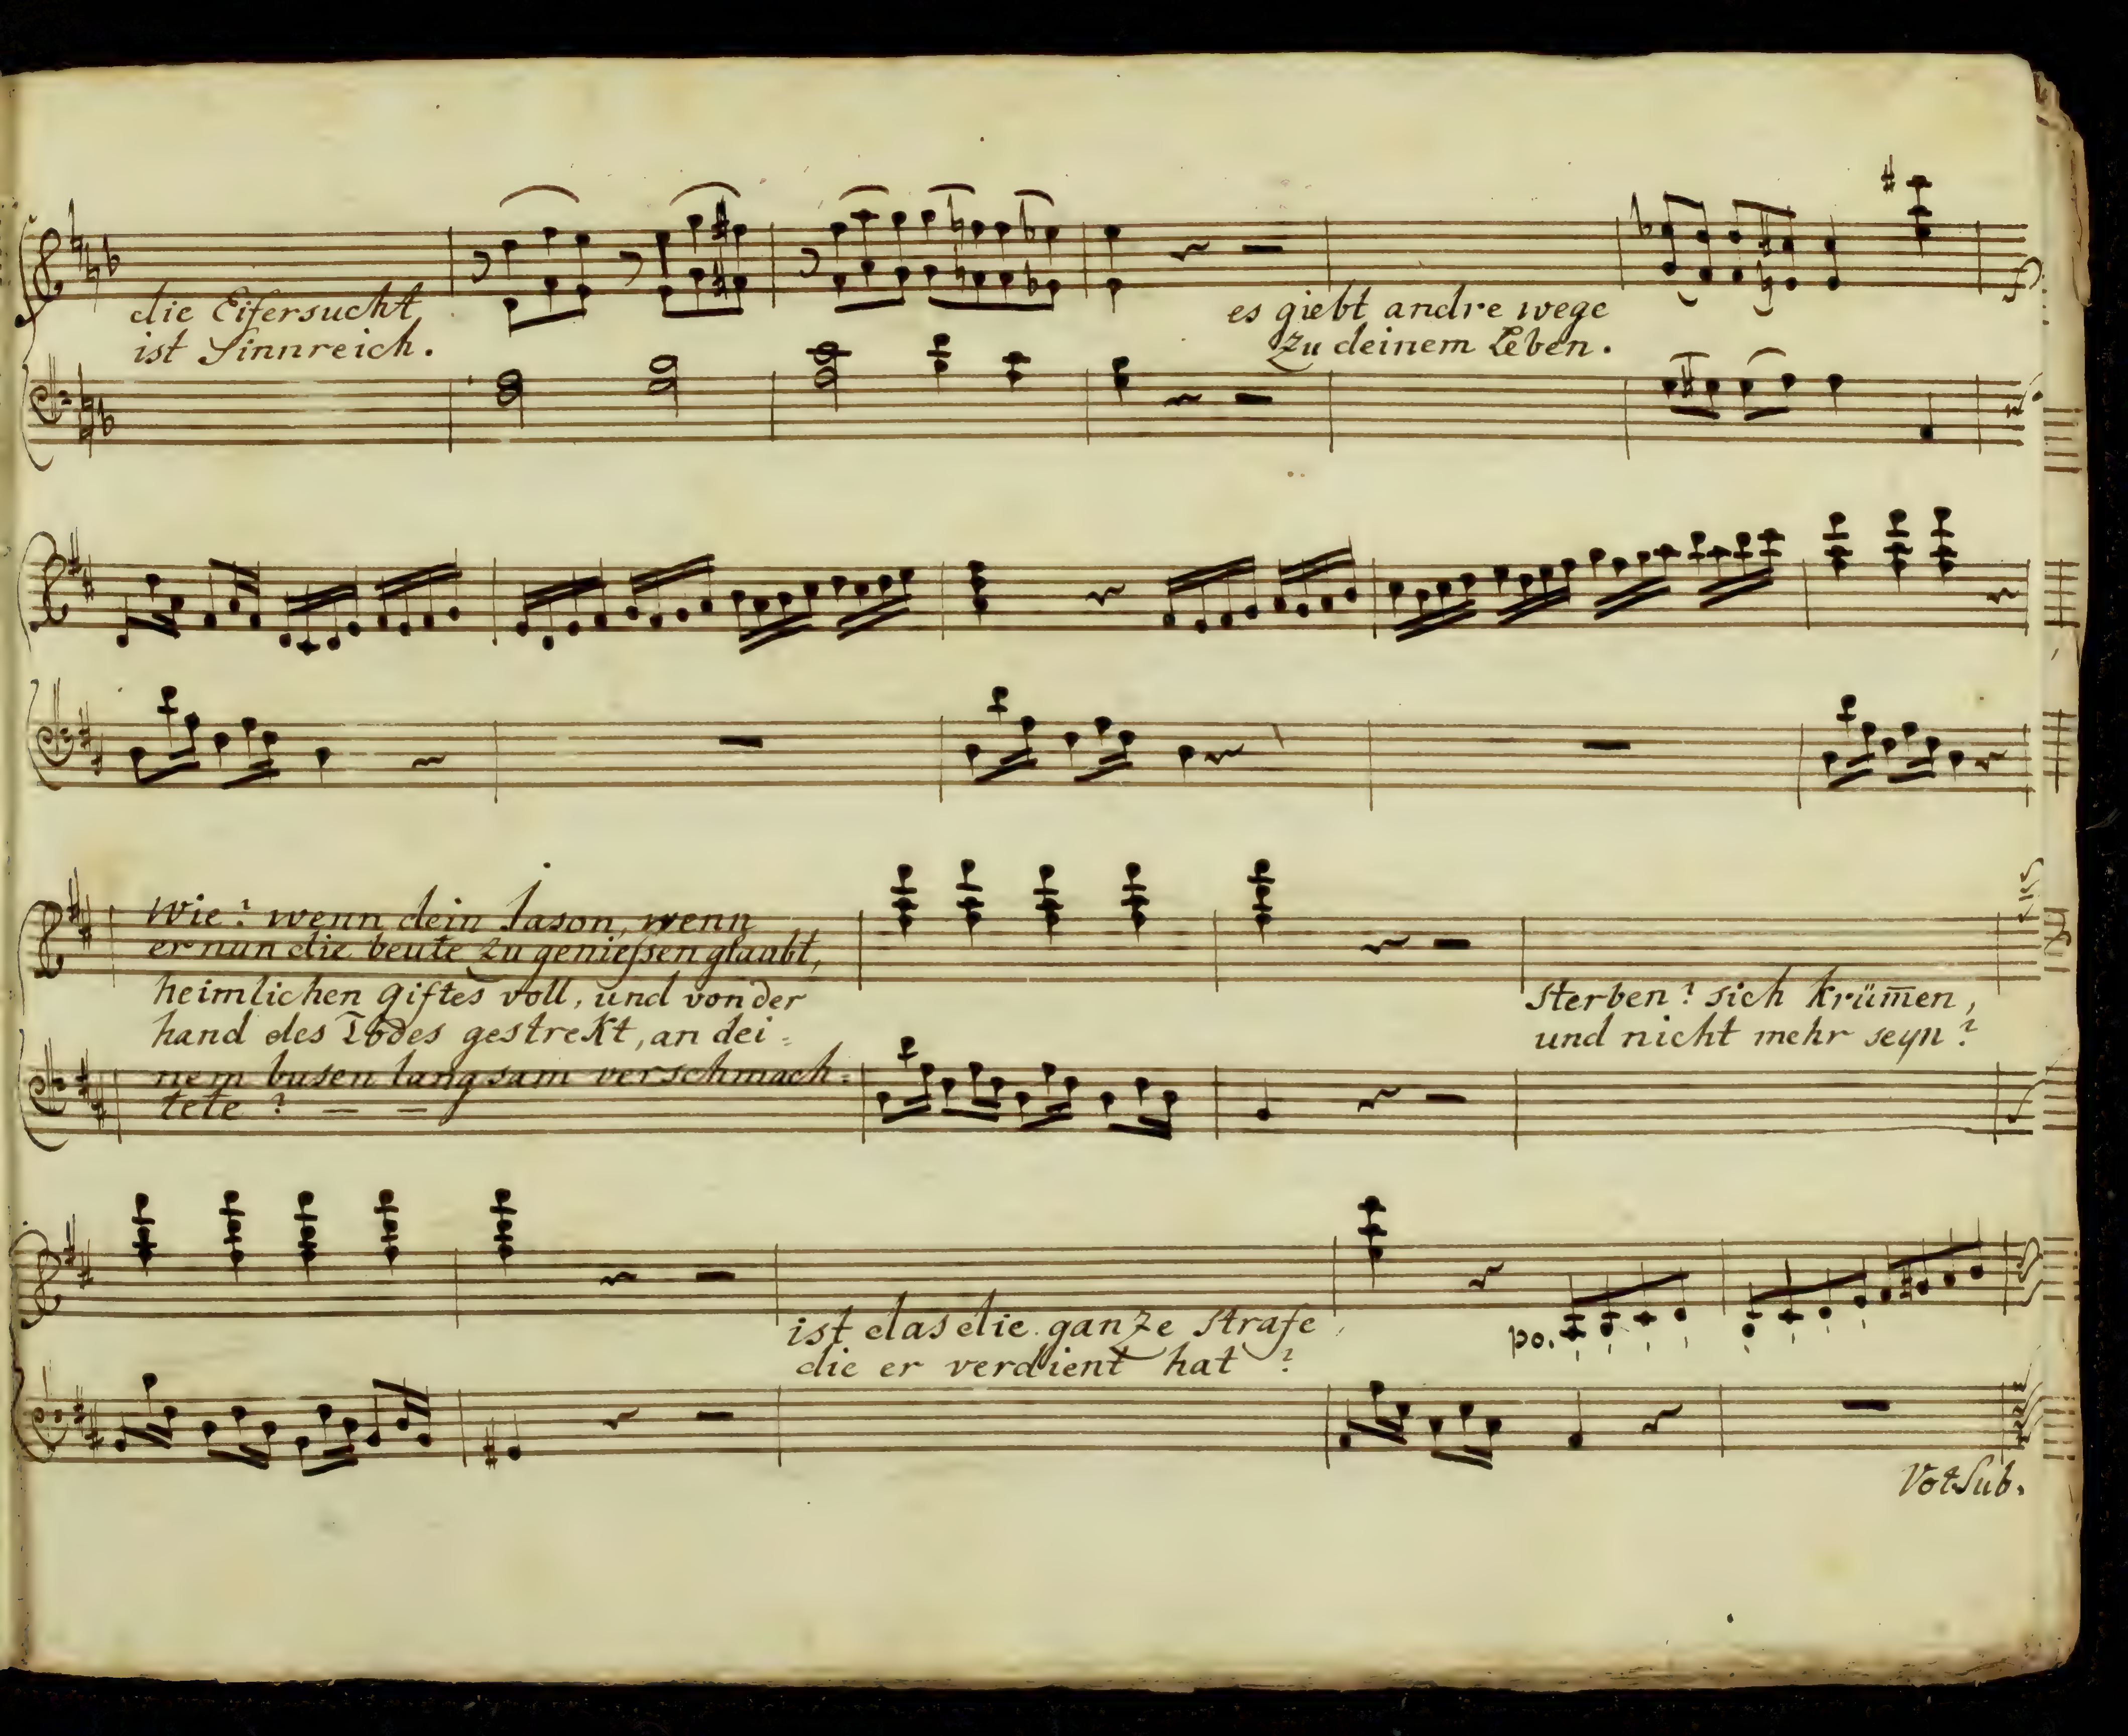 die Eifersucht
ist Sinnreich.
es giebt andre wege
zu deinem Leben.
Wie? wenn dein Jason, wenn
er nun die beute zu geniessen glaubt,
heimlichen giftes voll, und von der
hand des Todes gestrekt, an dei=
nem busen langsam verschmach=
tete ? — —
sterben? sich krüm̄en,
und nicht mehr seyn?
ist das die ganze strafe
die er verdient hat ?
po.